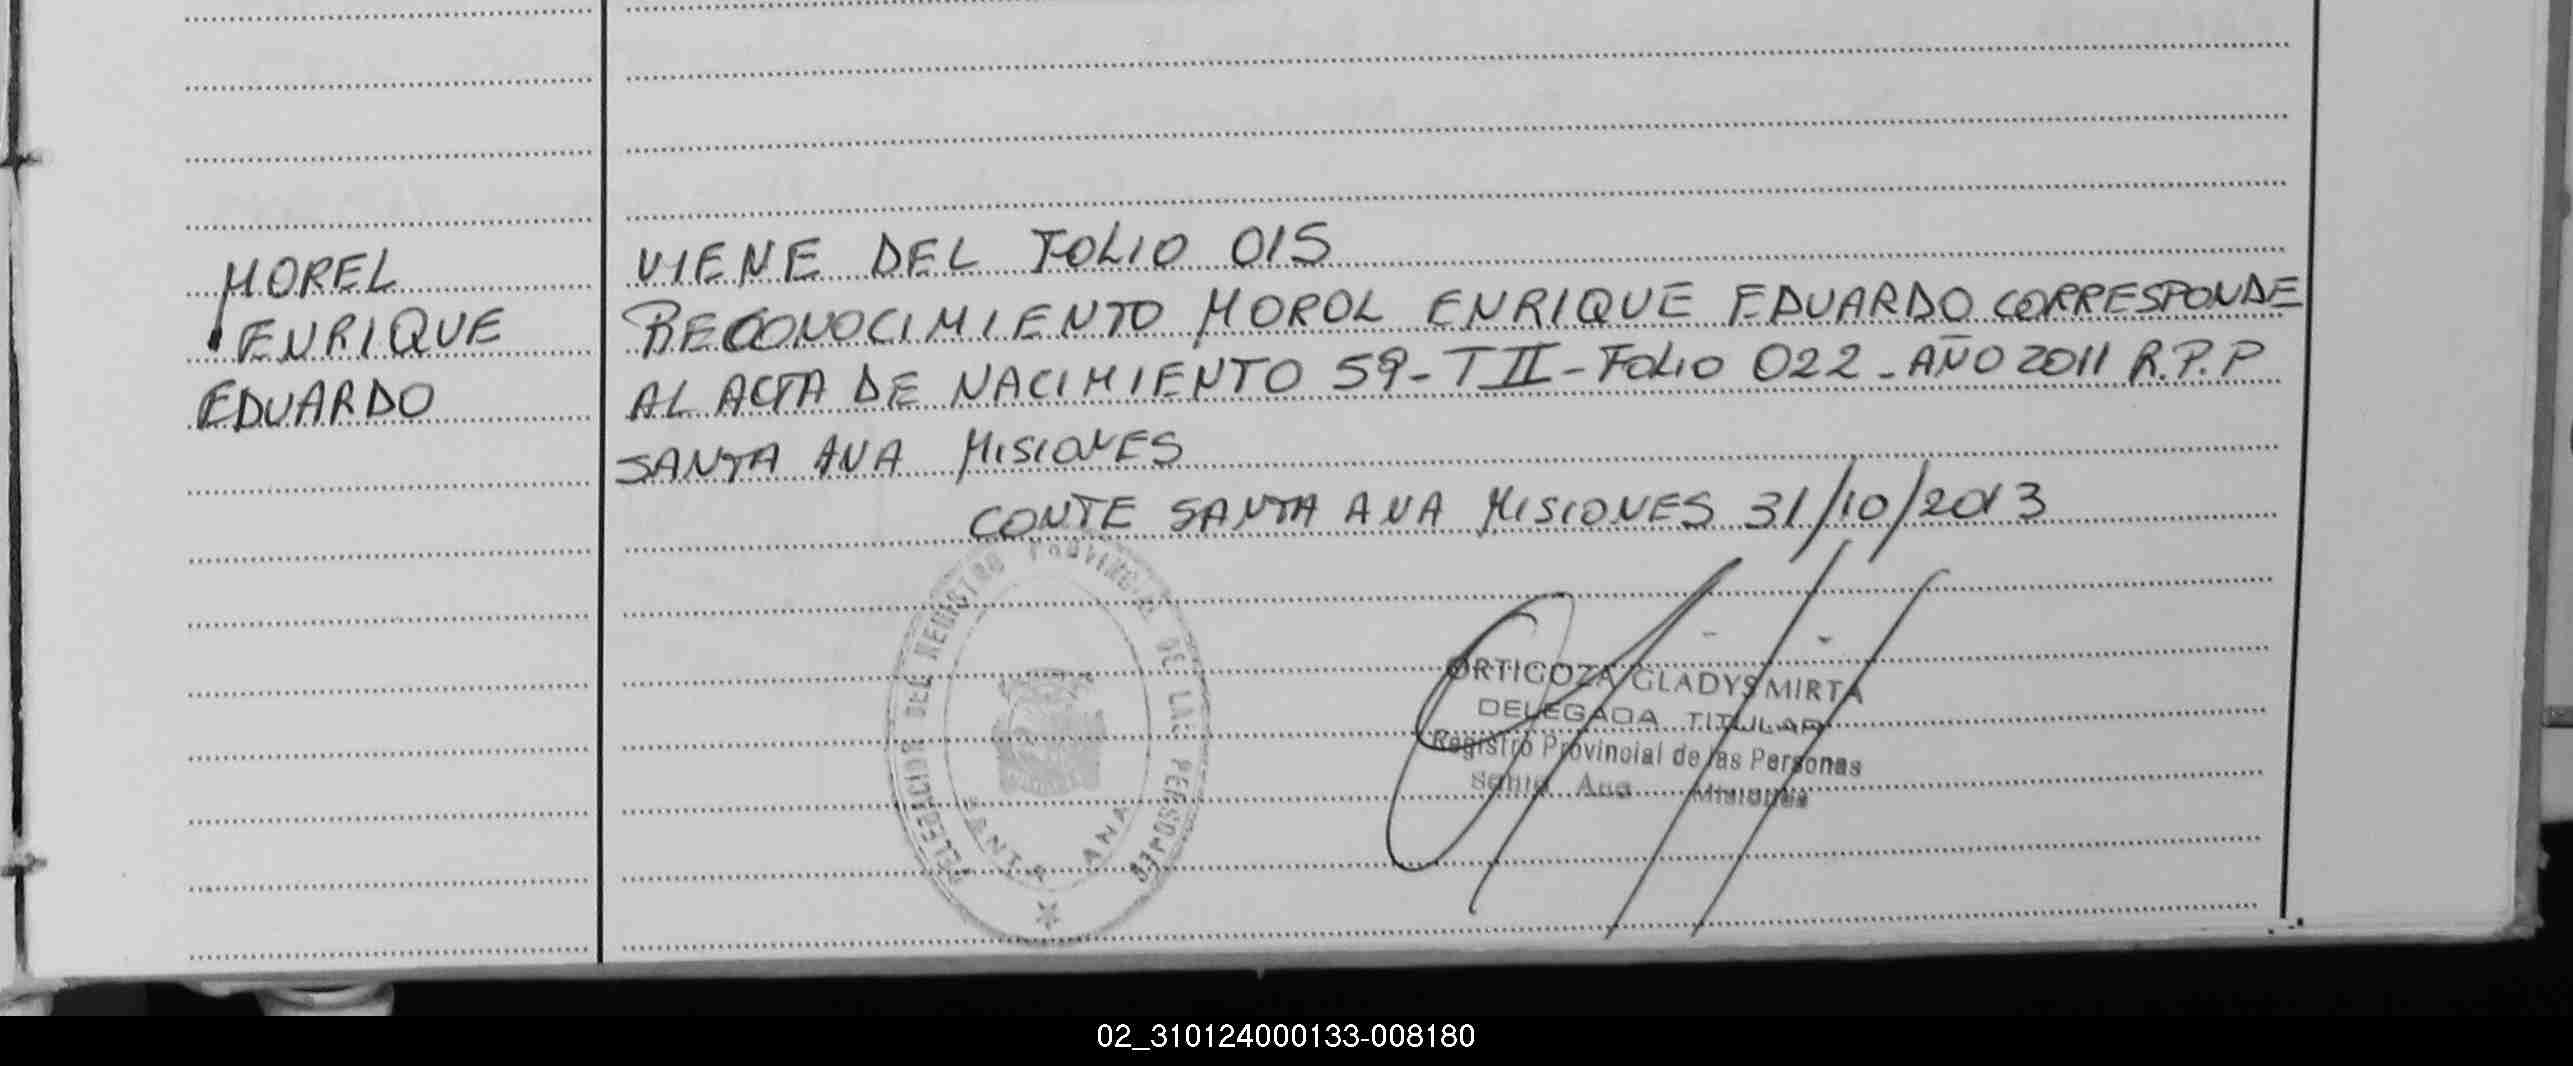 MOREL
ENRIQUE
EDUARDO
VIENE DEL FOLIO 015
RECONOCIMIENTO MOROL ENRIQUE EDUARDO CORRESPONDE
AL ACTA DE NACIMIENTO 59-TII-FOLIO 022-AÑO 2011 R.P.P
SANTA ANA MISIONES
CONTE SANTA ANA MISIONES 31/10/2013
DELEGACION DEL REGISTRO PROVINCIAL DE LAS PERSONAS
SANTA ANA
ORTIGOZA GLADYS MIRTA
DELEGADA TITULAR
Registro Provincial de las Personas
Santa Ana Misiones
02_310124000133-008180